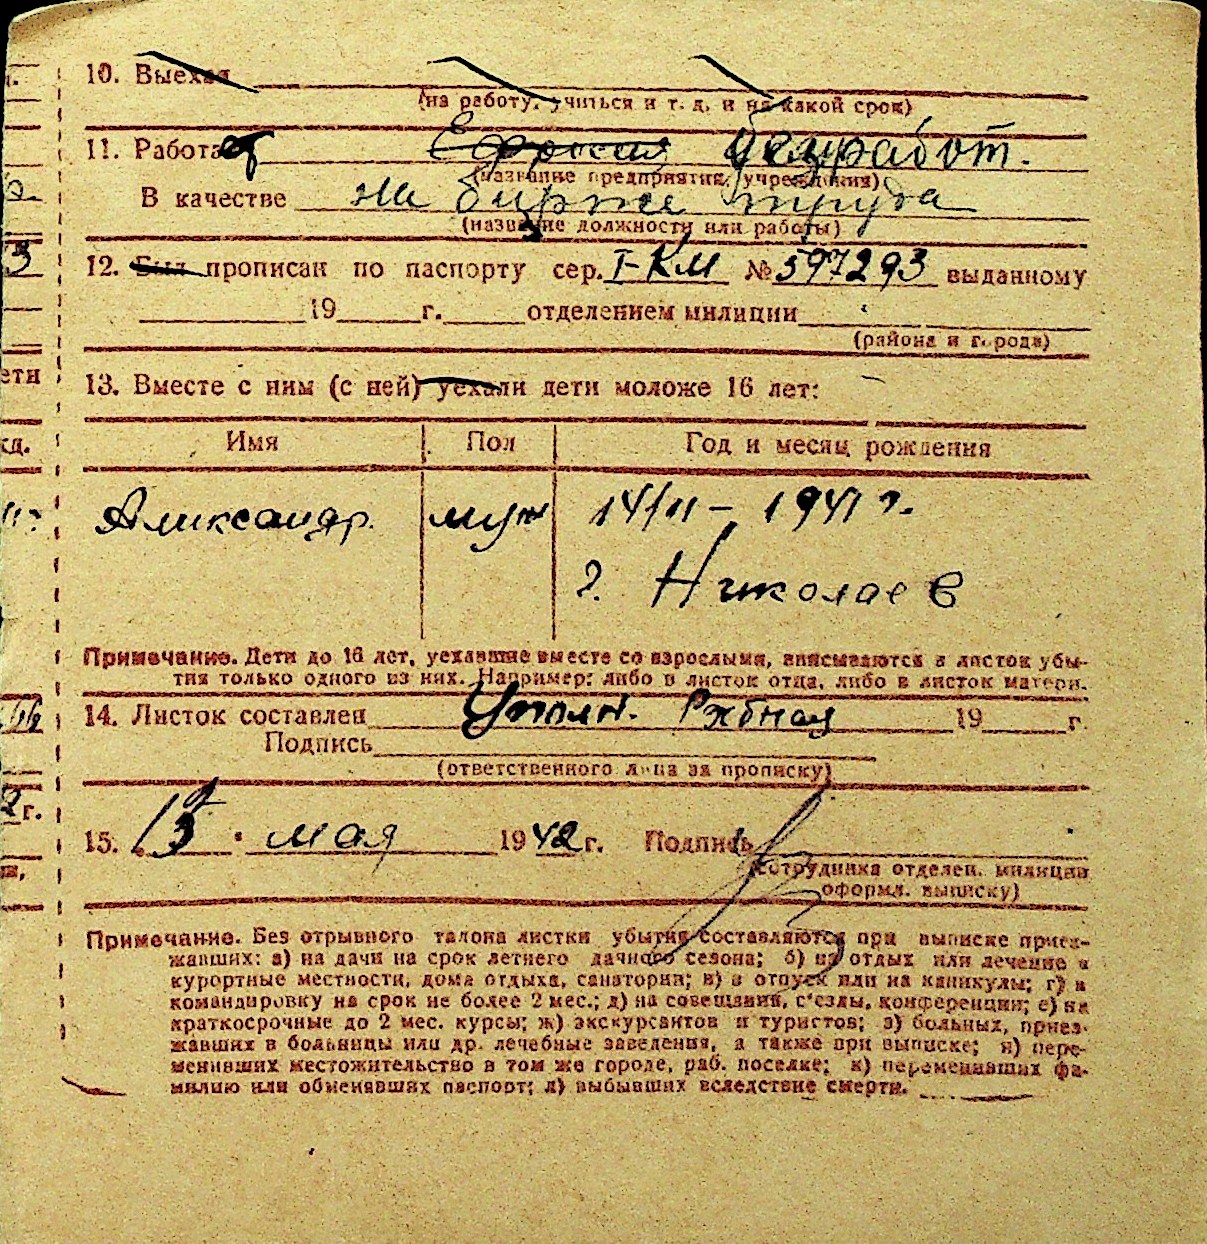 10. Выехал
(на работу, учиться и т. д. и на какой срок)
11. Работает безработ.
(название предприятия, учреждения)
В качестве на бирже труда
(название должности или работы)
12. Был прописан по паспорту сер. I-КМ № 597293 выданному
19 г. отделением милиции
(района и города)
13. Вместе с ним (с ней) уехали дети моложе 16 лет:
Имя Пол Год и месяц рождения
Александр. муж 14/II – 1941 г.
г. Николаев
Примечание. Дети до 16 лет, уехавшие вместе со взрослыми, вписываются в листок убы-
тия только одного из них. Например: либо в листок отца, либо в листок матери.
14. Листок составлен Уполн. 19 г.
Подпись
(ответственного лица за прописку)
15. 13 мая 1942 г. Подпись
(сотрудника отделен. милиции
оформл. выписку)
Примечание. Без отрывного талона листки убытия составляются при выписке приез-
жавших: а) на дачи на срок летнего дачного сезона; б) на отдых или лечение в
курортные местности, дома отдыха, санатории; в) в отпуск или на каникулы; г) в
командировку на срок не более 2 мес.; д) на совещания, с'езды, конференции; е) на
краткосрочные до 2 мес. курсы; ж) экскурсантов и туристов; з) больных, приез-
жавших в больницы или др. лечебные заведения, а также при выписке; и) пере-
менивших местожительство в том же городе, раб. поселке; к) переменивших фа-
милию или обменявших паспорт; л) выбывших вследствие смерти.